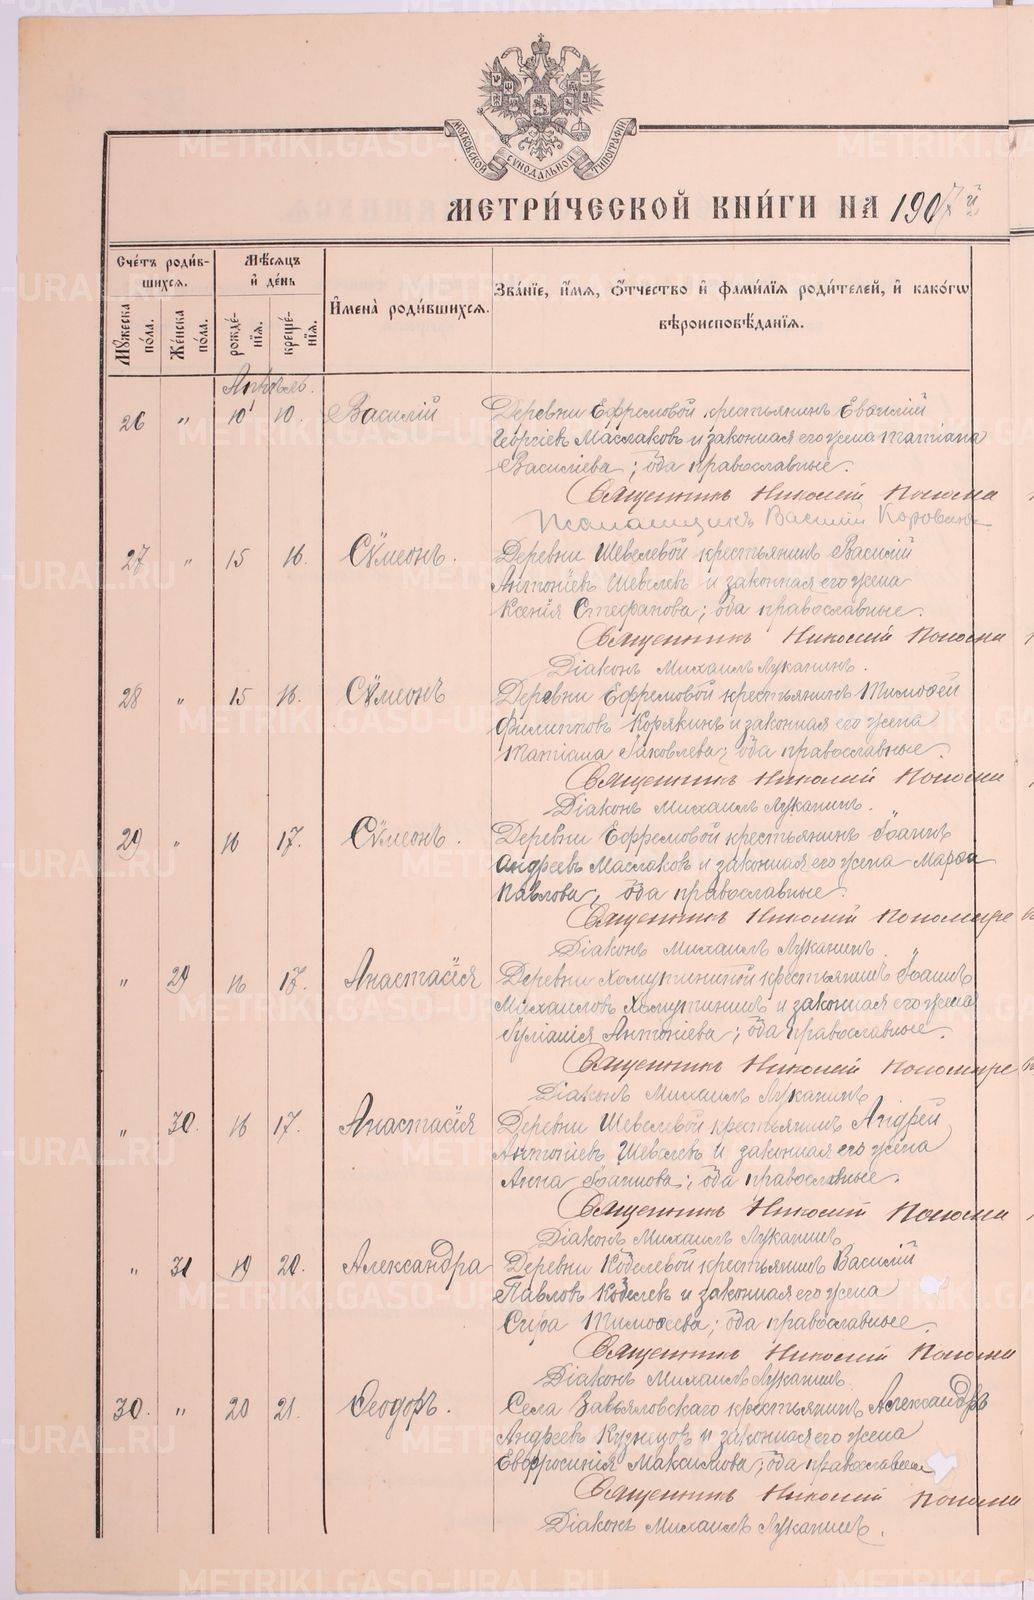 МОСКОВСКОЙ СУНОДАЛЬНОЙ ТИПОГРАФІИ
МЕТРИ́ЧЕСКОЙ КНИ́ГИ НА 1907й
Сче́тъ роди́в-
шихсѧ.
Мѣ́сѧцъ
и҆ де́нь
И҆мена̀ роди́вшихсѧ.
Зва́нїе, и҆́мѧ, ѻ҆́тчество и҆ фами́лїѧ роди́телей, и҆ како́гѡ
вѣроисповѣ́данїѧ.
Мꙋ́жеска по́ла.
Же́нска по́ла.
рожде́-
нїѧ.
креще́-
нїѧ.
Апрѣль.
26 „ 10 10. Василій Деревни Ефремовой крестьянинъ Евѳимій
Георгіевъ Маслаковъ и законная его жена Татіана
Василіева; оба православные.
Священникъ Николай Пономa
Псаломщикъ Василій
27 „ 15 16. Сѵмеонъ. Деревни Шевелевой крестьянинъ Василій
Антоніевъ Шевелевъ и законная его жена
Ксенія Стефанова; оба православные.
Священникъ Николай Понома
Діаконъ Михаилъ Луканинъ.
28 „ 15 16. Сѵмеонъ Деревни Ефремовой крестьянинъ Тимоѳей
Филипповъ Корякинъ и законная его жена
Татіана Іаковлева; оба православные.
Священникъ Николай Понома
Діаконъ Михаилъ Луканинъ.
29 „ 16 17. Сѵмеонъ. Деревни Ефремовой крестьянинъ Іоаннъ
Андреевъ Маслаковъ и законная его жена Марѳа
Павлова; оба православные.
Священникъ Николай Пономаре
Діаконъ Михаилъ Луканинъ.
„ 29 16 17. Анастасія Деревни Хомутининой крестьянинъ Іоаннъ
Михаиловъ Хомутининъ и законная его жена
Іуліанія Антоніева; оба православные.
Священникъ Николай Пономаре
Діаконъ Михаилъ Луканинъ
„ 30. 16 17. Анастасія Деревни Шевелевой крестьянинъ Андрей
Антоніевъ Шевелевъ и законная его жена
Анна Іоаннова; оба православные.
Священникъ Николай Понома
Діаконъ Михаилъ Луканинъ
„ 31 19 20. Александра Деревни Кобелевой крестьянинъ Василій
Павловъ Кобелевъ и законная его жена
Сира Тимоѳеева; оба православные.
Священникъ Николай Понома
Діаконъ Михаилъ Луканинъ.
30. „ 20 21. Ѳеодоръ. Села Завьяловскаго крестьянинъ Александръ
Андреевъ Кузнецовъ и законная его жена
Евфросинія Максимова; оба православные
Священникъ Николай Понома
Діаконъ Михаилъ Луканинъ.
METRIKI.GASO-URAL.RU